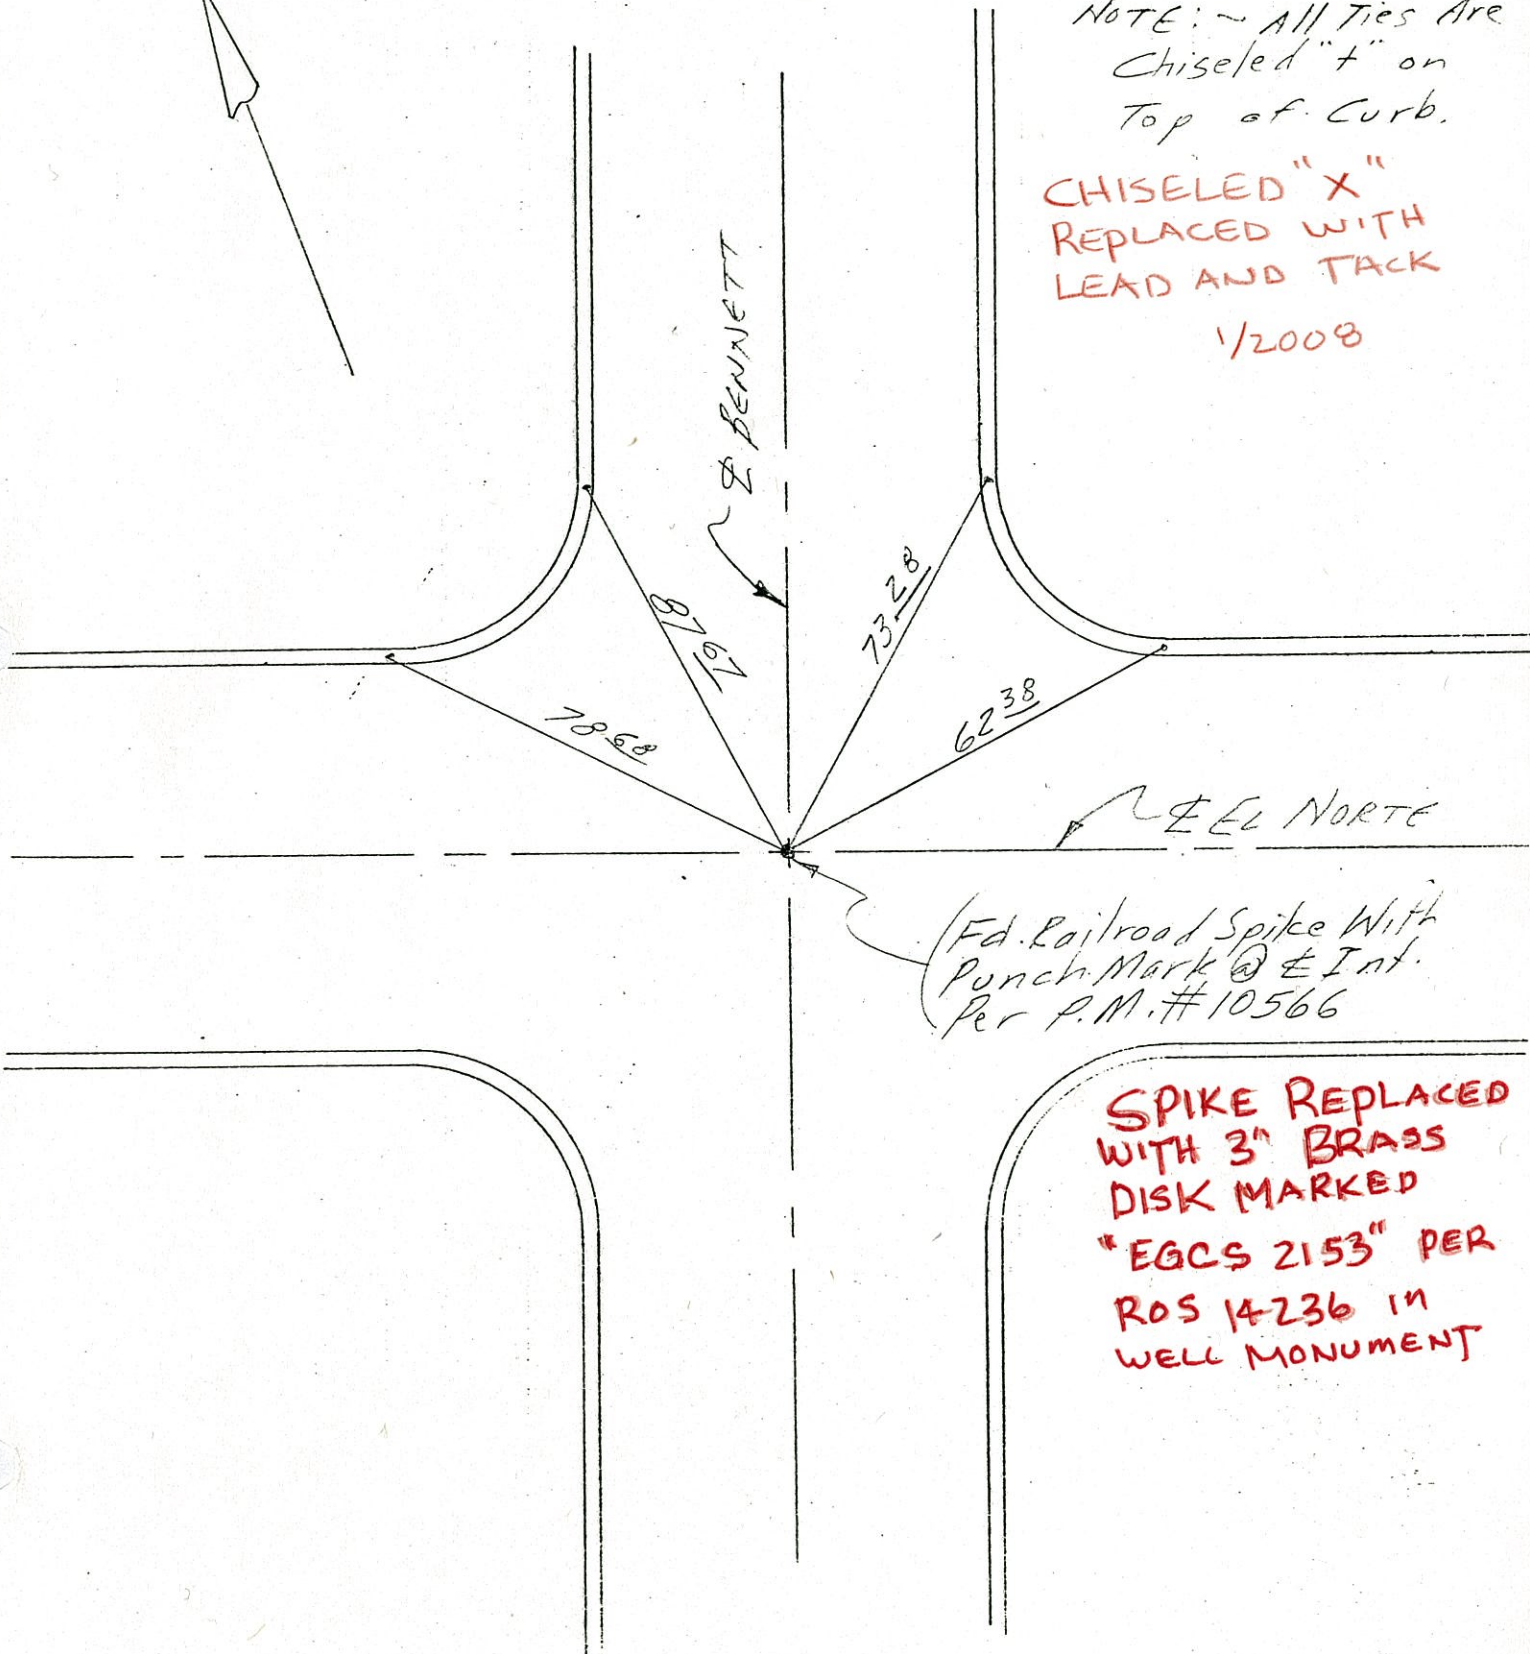 NOTE: ~ All Ties Are
Chiseled "+" on
Top of Curb.
CHISELED "X"
REPLACED WITH
LEAD AND TACK
1/2008
℄ BENNETT
87.67
73.28
78.68
62.38
℄ EL NORTE
Fd. Railroad Spike With
Punch Mark @ ℄ Int.
Per P.M. #10566
SPIKE REPLACED
WITH 3" BRASS
DISK MARKED
"EGCS 2153" PER
ROS 14236 IN
WELL MONUMENT